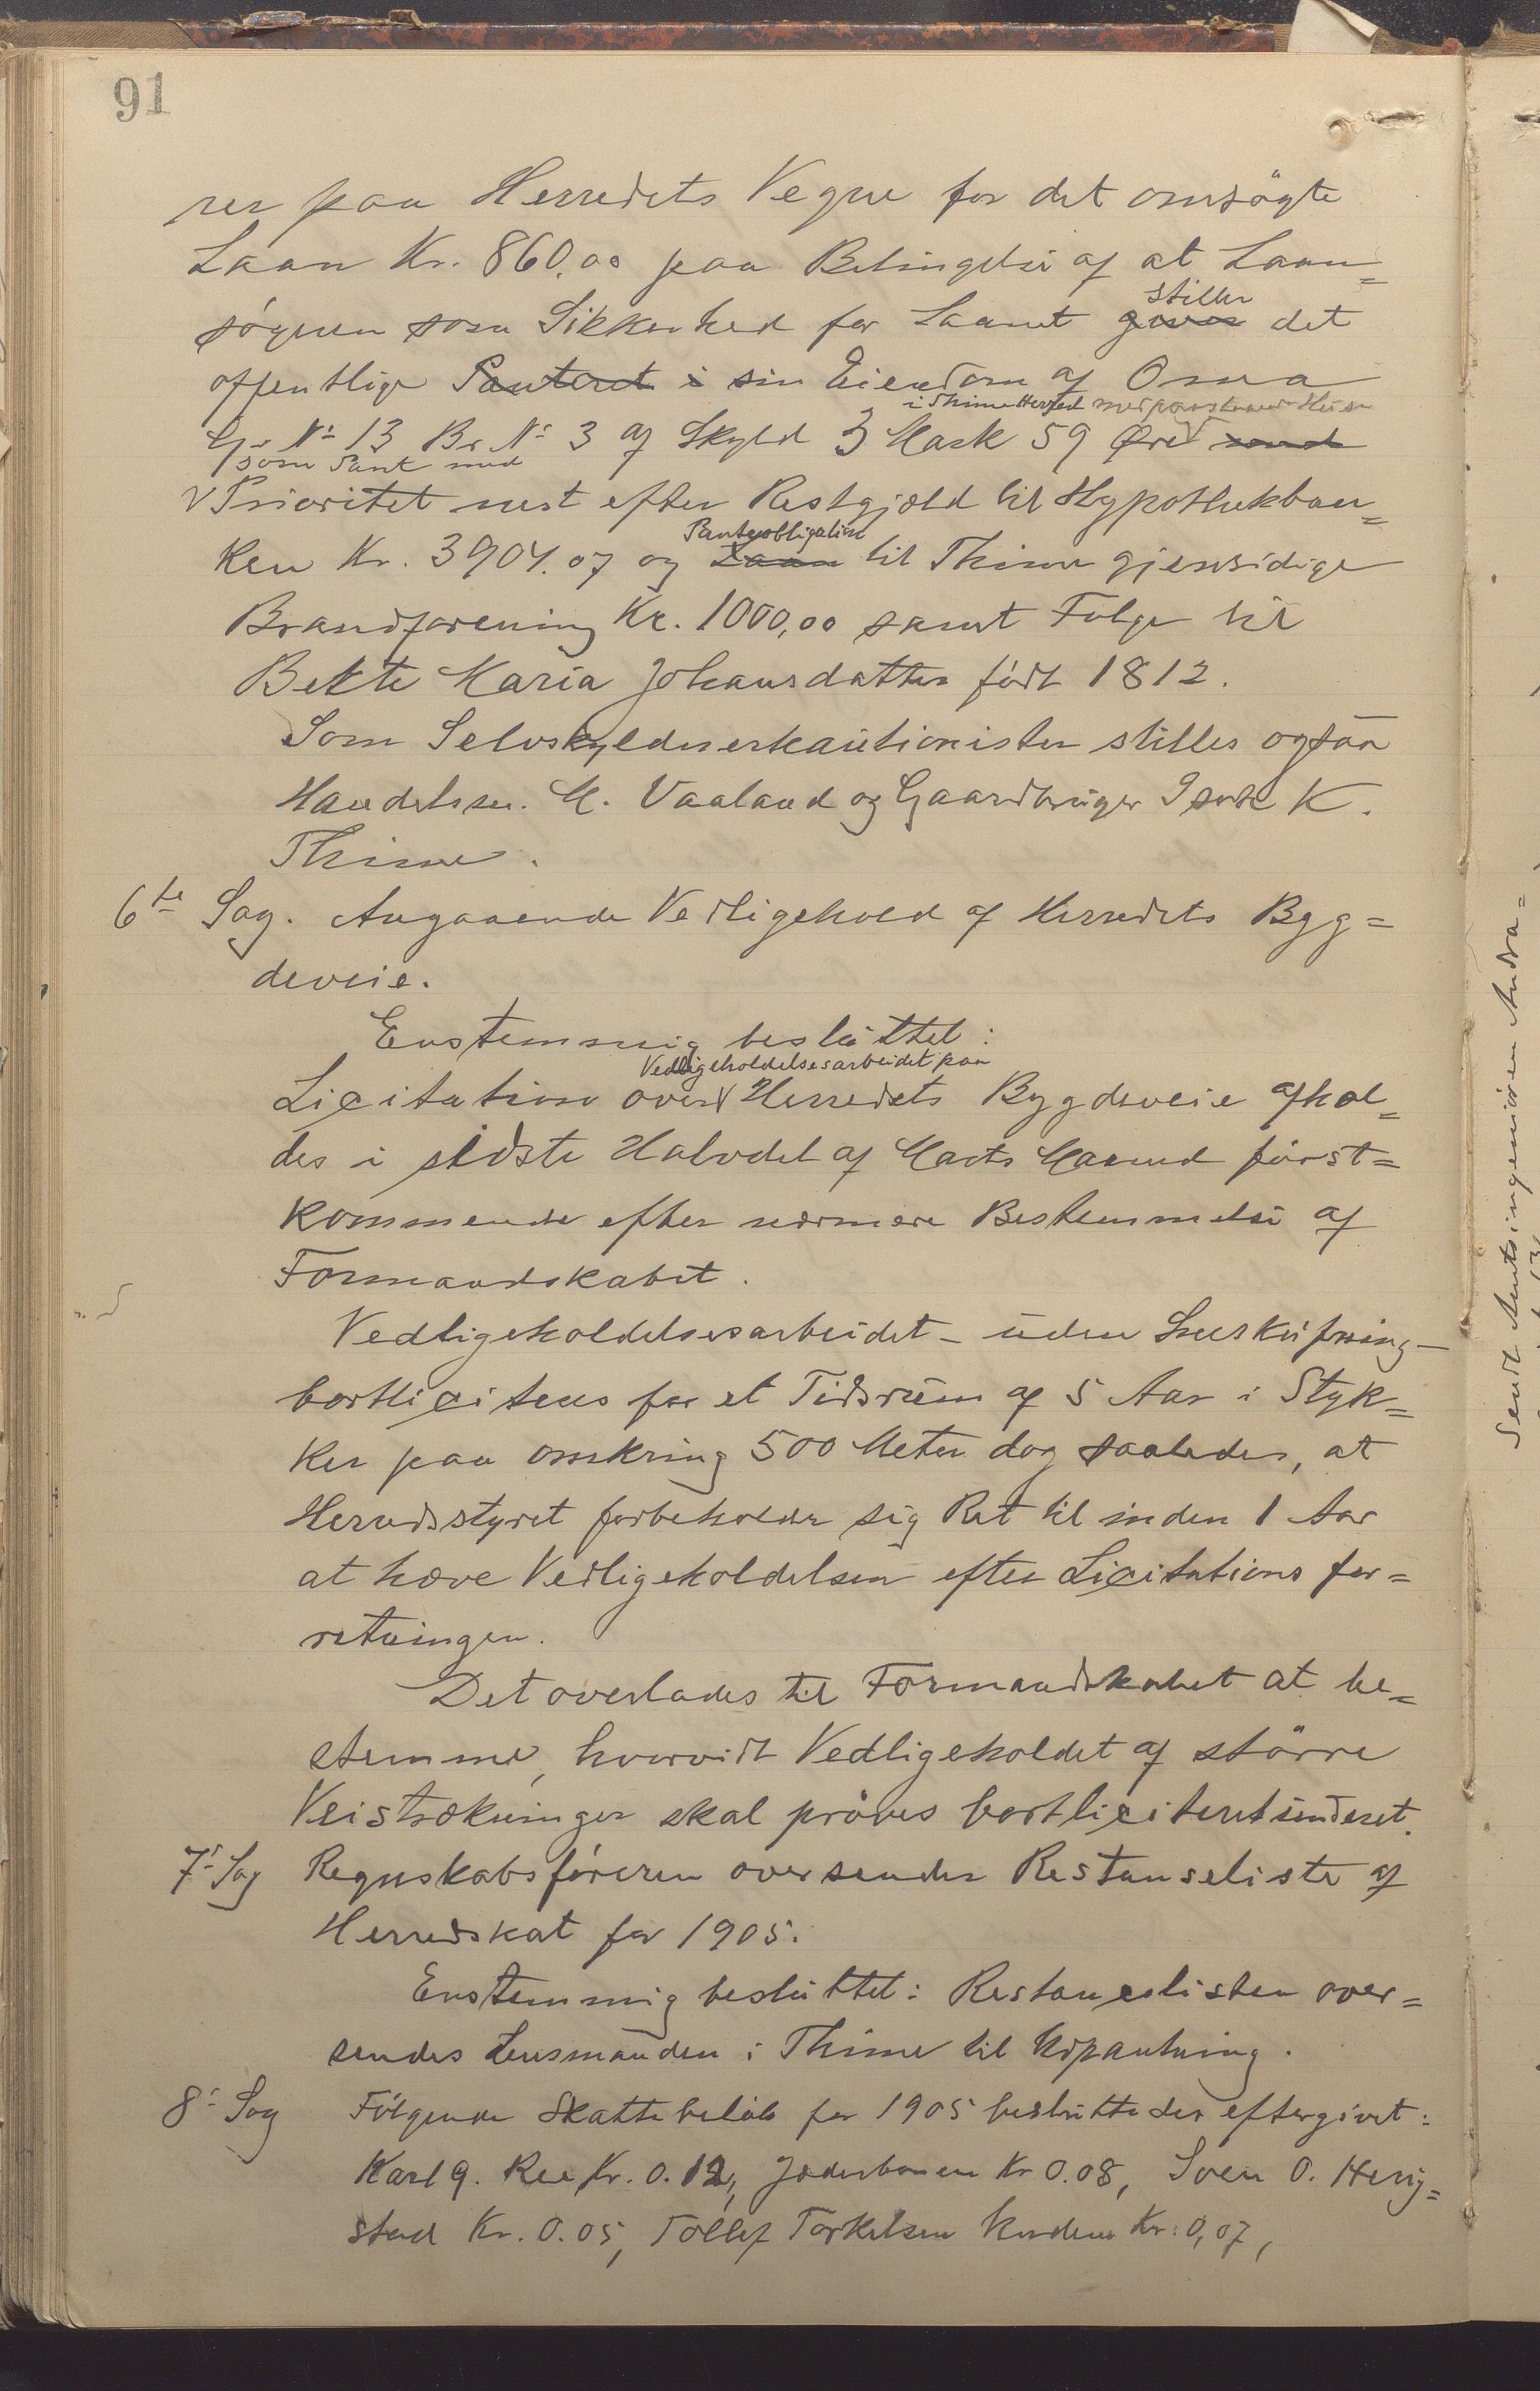 91
rer paa Herredets Vegne for det omsögte
Laan Kr. 860,00 paa Betingelse af at Laan=
stiller
sögeren som Sikkerhed for Laanet giver det
offentlige Panteret i sin Eiendom af Onea
i Thime Herred med paastaaende Huse
Gr No 13 Br No 3 af Skyld 3 Mark 59 Øre med
som Pant med
V Prioritet nest efter Restgjæld til Hypothekban=
Panteobligation
ken Kr. 3904.07 og Laan til Thime gjensidige
Brandforening Kr. 1000,00 samt Folge til
Bekte Maria Johansdatter födt 1812.
Som Selvskyldnerkautionister stilles ogsaa
Handelsm. M. Vaaland og Gaardbruger Isak K.
Thime.
6te Sag. Angaaende Vedligehold af Herredets Byg=
deveie.
Enstemmig besluttet:
Vedligeholdelsesarbeidet paa
Licitation over V Herredets Bygdeveie afhol=
des i sidste Halvdel af Marts Maaned först=
kommende efter nærmere Bestemmelse af
Formandskabet.
Vedligeholdelsesarbeidet – uden Sneskufning –
bortliciteres for et Tidsrum af 5 Aar i Styk=
ker paa omkring 500 Meter dog saaledes, at
Herredsstyret forbeholder sig Ret til inden 1 Aar
at hæve Vedligeholdelsen efter Licitations for=
retningen.
Det overlades til Formandskabet at be=
stemme, hvorvidt Vedligeholdet af större
Veistrækninger skal pröves bortliciteret underet.
7' Sag Regnskabsföreren oversender Restanseliste af
Herredskat for 1905.
Enstemmig besluttet: Restanselisten over=
sendes Lensmanden i Thime til Udpantning.
8' Sag Fölgende Skattebelöb for 1905 besluttedes eftergivet:
Karl G. Ree Kr. 0.12, Jæderbanen Kr 0.08, Sven O. Herig=
stad Kr. 0.05, Tollef Torkelsen Kr: 0,07,
Sendt Amtsingeniören Andra=